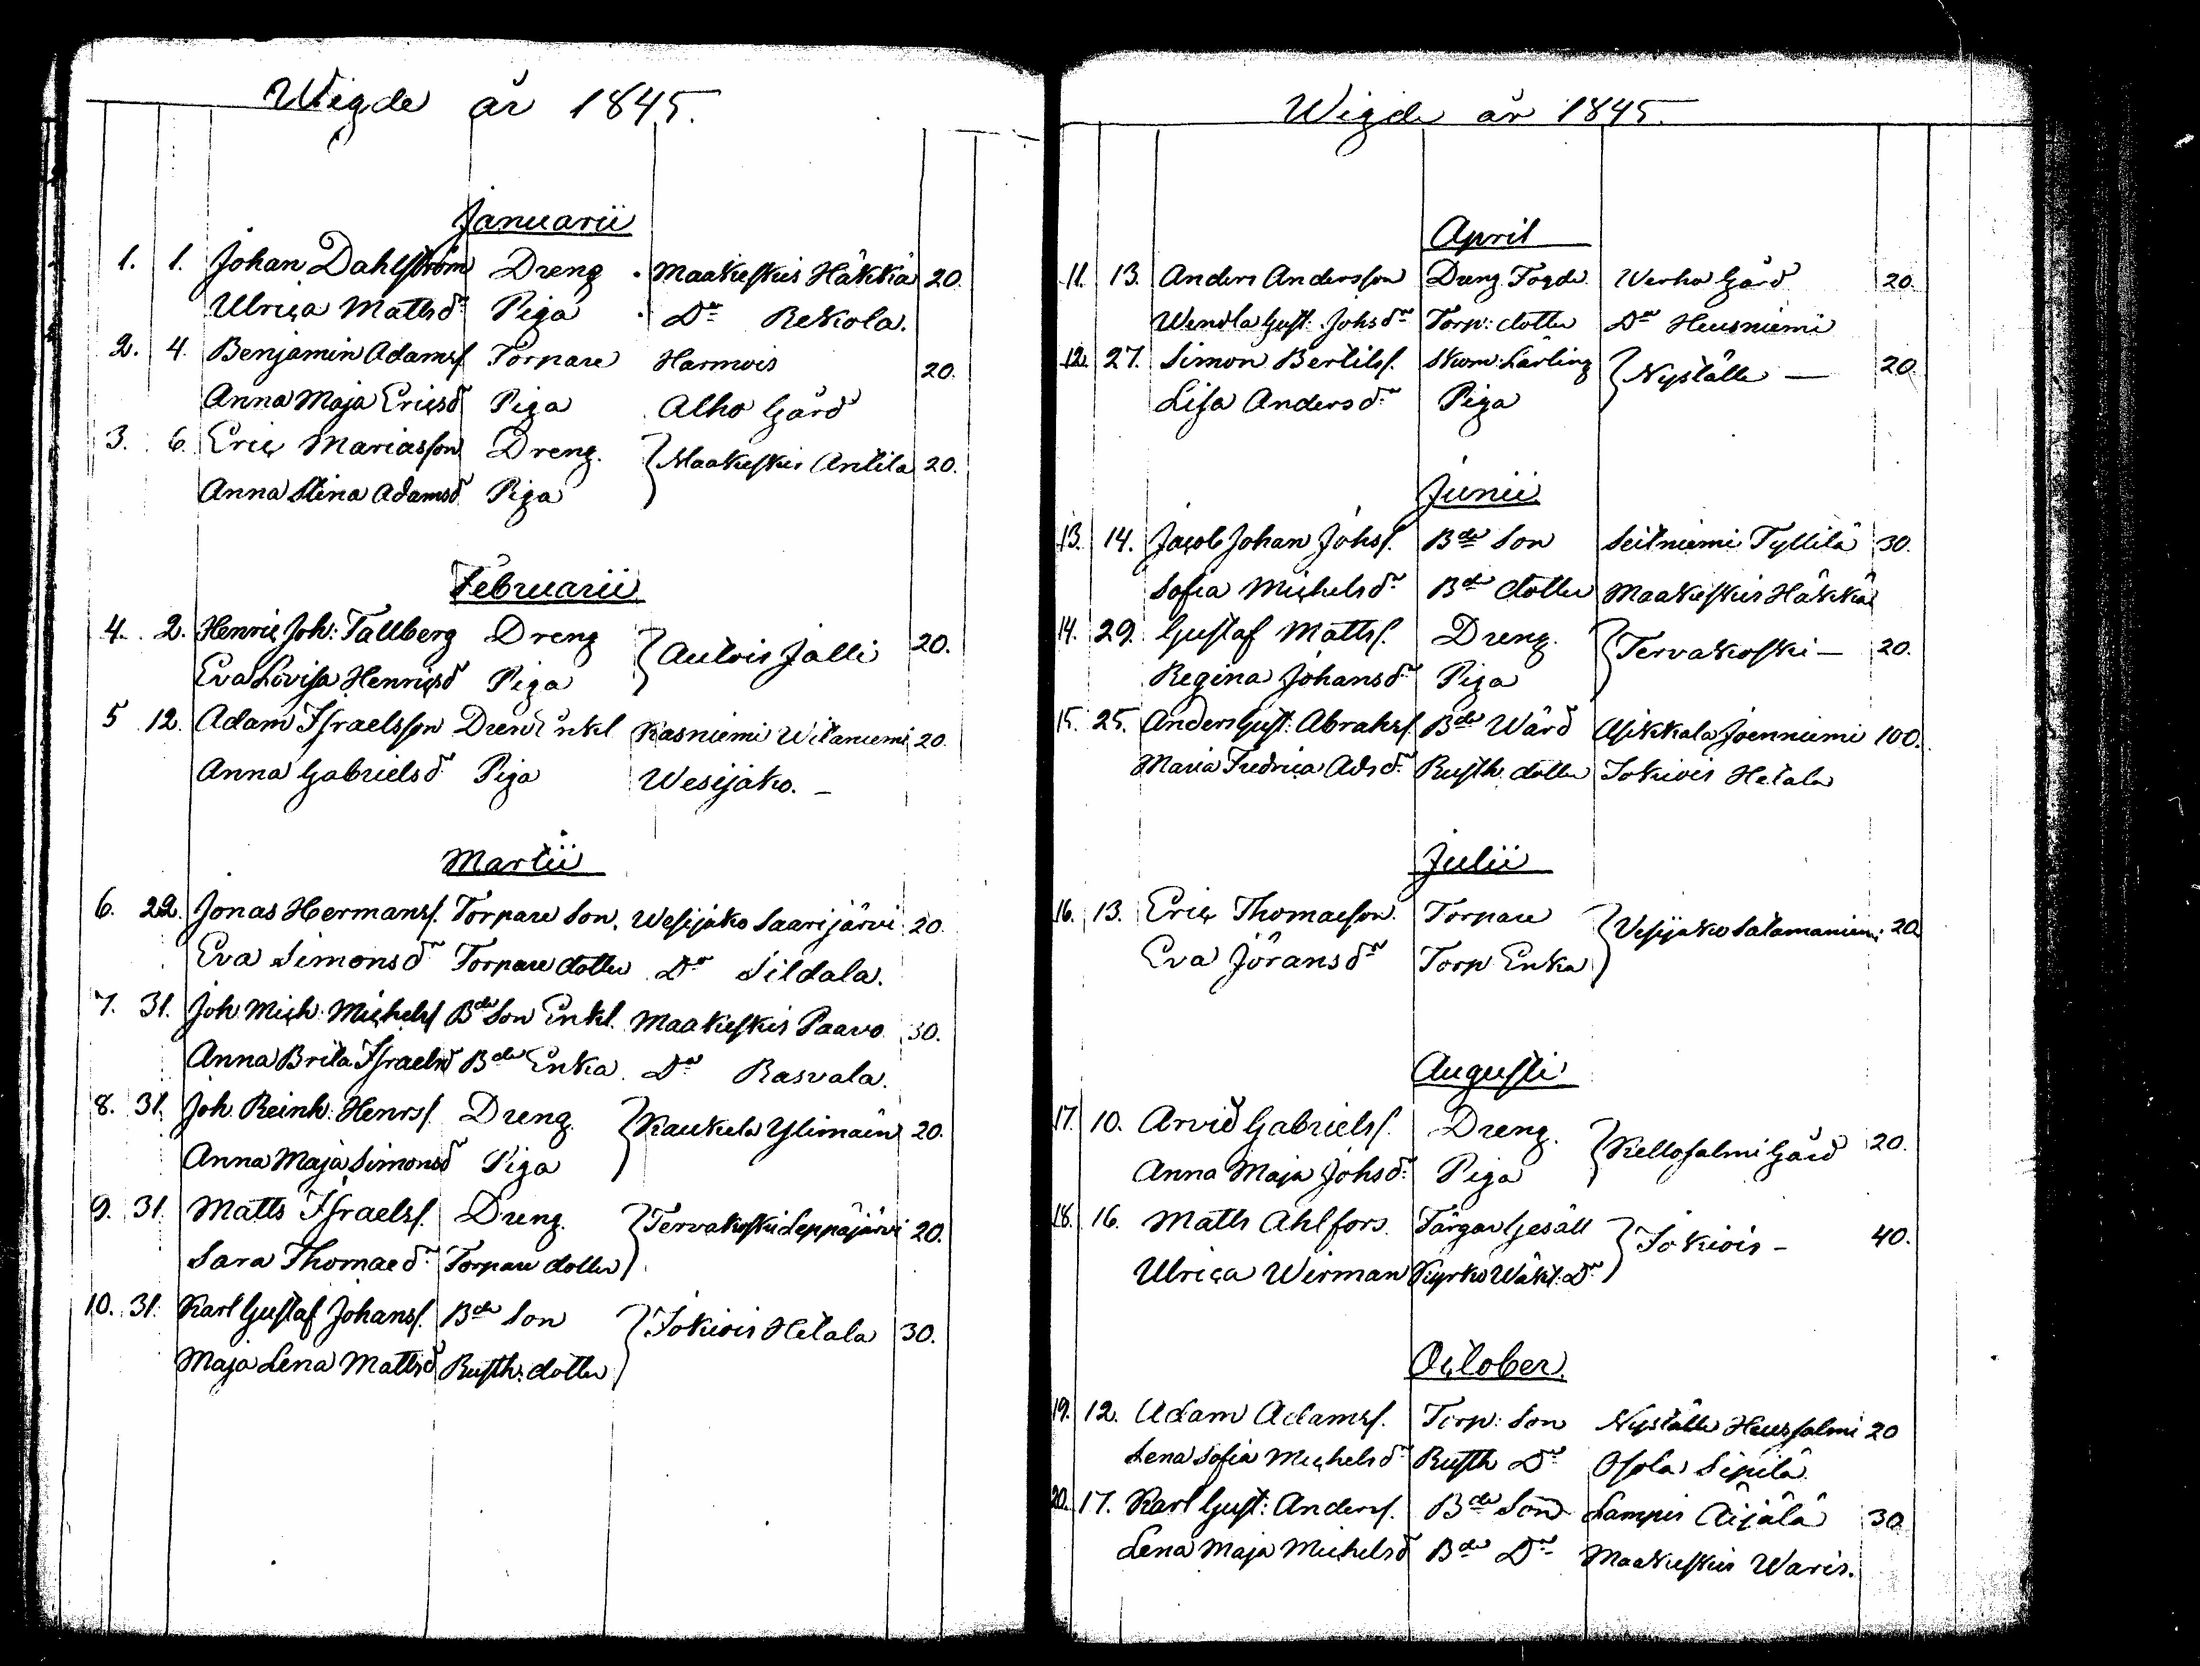 Wigde år 1845.
Januarii
1. 1. Johan Dahlström Dreng Maakeskis Häkkä 20.
Ulrica Mattsdr Piga Do Rekola.
2. 4. Benjamin Adamss. Torpare Harmois 20.
Anna Maja Ericsd Piga Alho Gård
3. 6. Eric Mariasson Dreng. Maakeskis Antila 20.
Anna Stina Adamsd Piga
Februarii
4. 2. Henric Joh: Tallberg Dreng Autois Jalli 20.
Eva Lovisa Henricsd Piga
5 12. Adam Israelsson Dreng Enkl Kasniemi Witaniemi 20.
Anna Gabrielsd Piga Wesijako. -
Martii
6. 22. Jonas Hermans. Torpare Son. Wesijako Saarijärvi 20.
Eva Simonsdr Torpare dotter Do Sildala.
7. 31. Joh Mich: Michels. Bde Son Enkl. Maakeskis Paavo 30.
Anna Brita Israelsd Bde Enka. Do Rasvala.
8. 31. Joh. Reinh: Henrs. Dreng. Kaukela Ylimäin 20.
Anna Maja Simonsd Piga
9. 31. Matts Israels. Dreng. Tervakoski Leppäjärvi 20.
Sara Thomaedr Torpare dotter
10. 31. Karl Gustaf Johans. Bde Son Jokiois Hetala 30.
Maja Lena Mattsd Rusth: dotter
Wigde år 1845.
April
11. 13. Anders Andersson Dreng Fogde Werho Gård 20.
Wendla Gust: Johsdr Torp: dotter Do Heusniemi
12. 27. Simon Bertils. Skom: Lärling Nyställe — 20
Lisa Andersdr Piga
Junii
13. 14. Jacob Johan Johs. Bde Son Seitniemi Tyllilä 30.
Sofia Michelsdr Bde dotter Maakeskis Häkkä
14. 29. Gustaf Matts. Dreng. Tervakoski — 20.
Regina Johansdr Piga
15. 25. Anders Gust: Abrahs. Bde Wärd Asikkala Joenniemi 100.
Maria Fredrica Adsdr Rusth. dotter Jokiois Hetala
Julii
16. 13. Eric Thomaeson. Torpare Vesijako Salamaniemi 20
Eva Jöransdr Torp Enka
Augusti
17. 10. Arvid Gabriels. Dreng. Kellosalmi Gård 20.
Anna Maja Johsdr Piga
18. 16. Matts Ahlfors. Färgar Gesäll Jokiois - 40.
Ulrica Wirman Kyrko Wäkt: Dr
October.
19. 12. Adam Adams. Torp: Son Nyställe Heussalmi 20
Lena Sofia Michelsdr Rusth Dr Osola Sipilä
20. 17. Karl Gust: Anders. Bde Son Lampis Äijälä 30
Lena Maja Michelsd Bde Dr Maakeskis Waris.